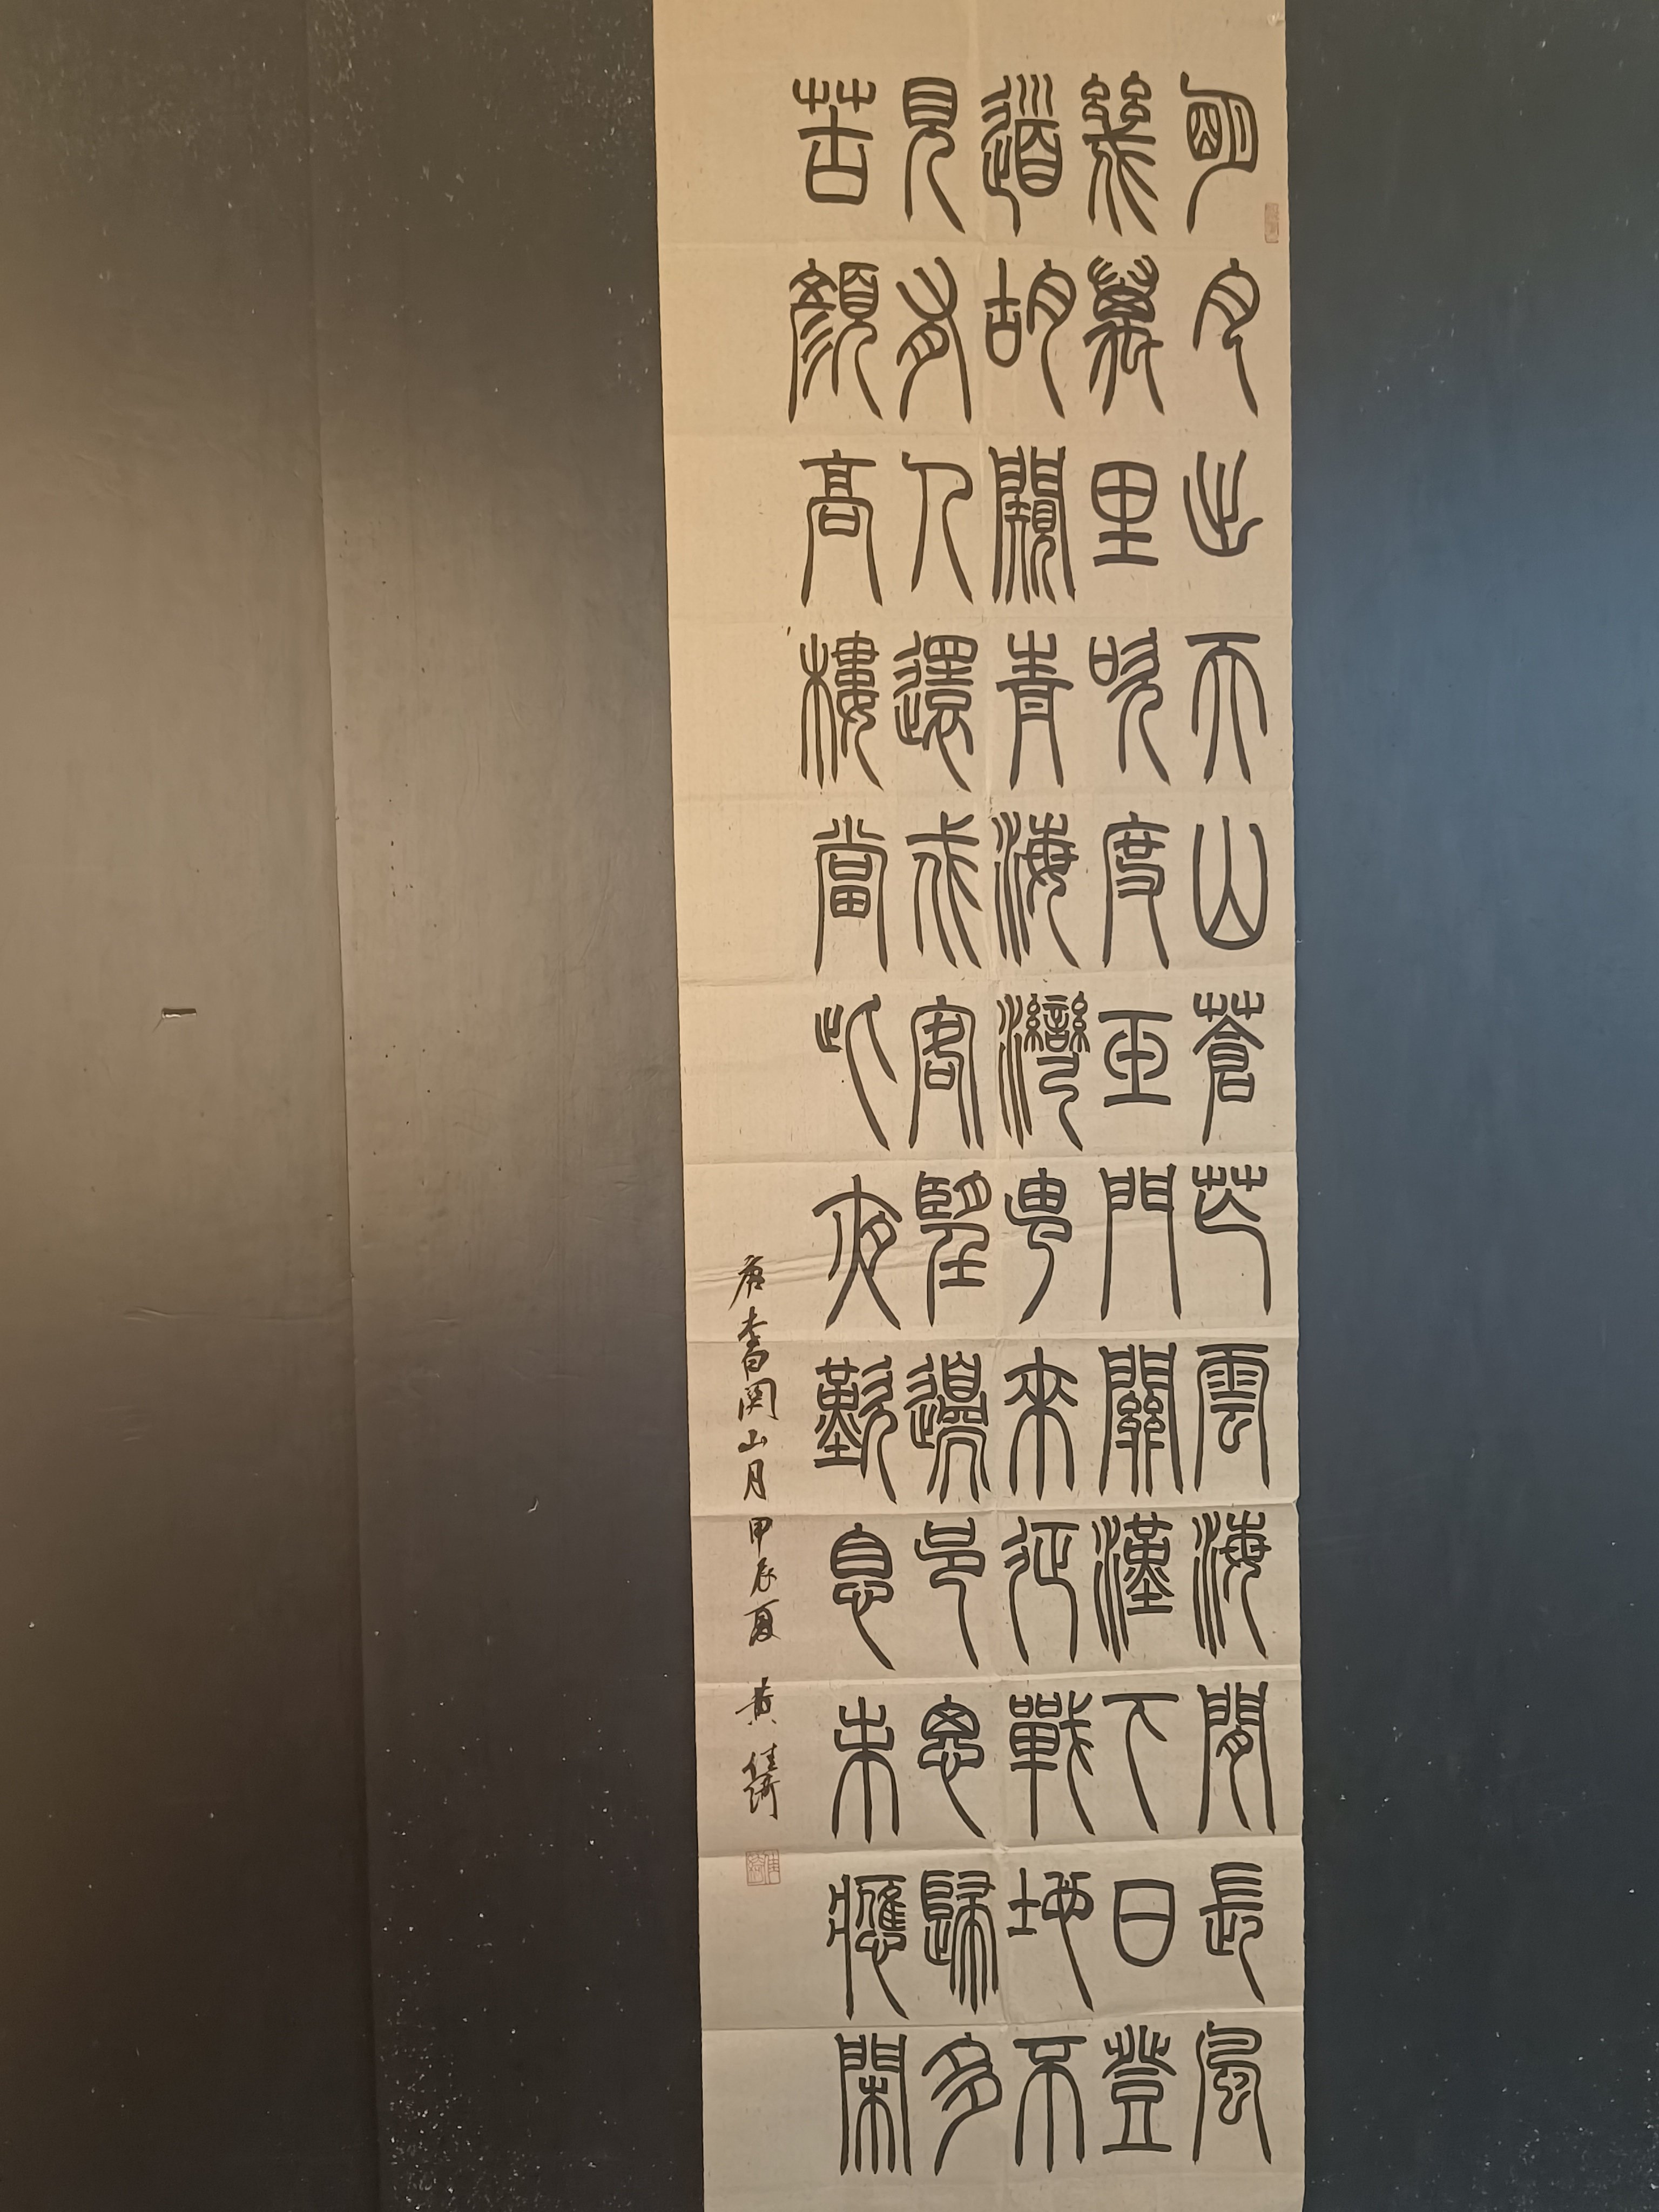 明月出天山蒼茫雲海間長風
幾萬里吹度玉門關漢下白登
道胡闚青海灣由來征戰地不
見有人還戍客望邊邑思歸多
苦顏高樓當此夜歎息未應閑
唐李白関山月 甲辰夏 黄佳